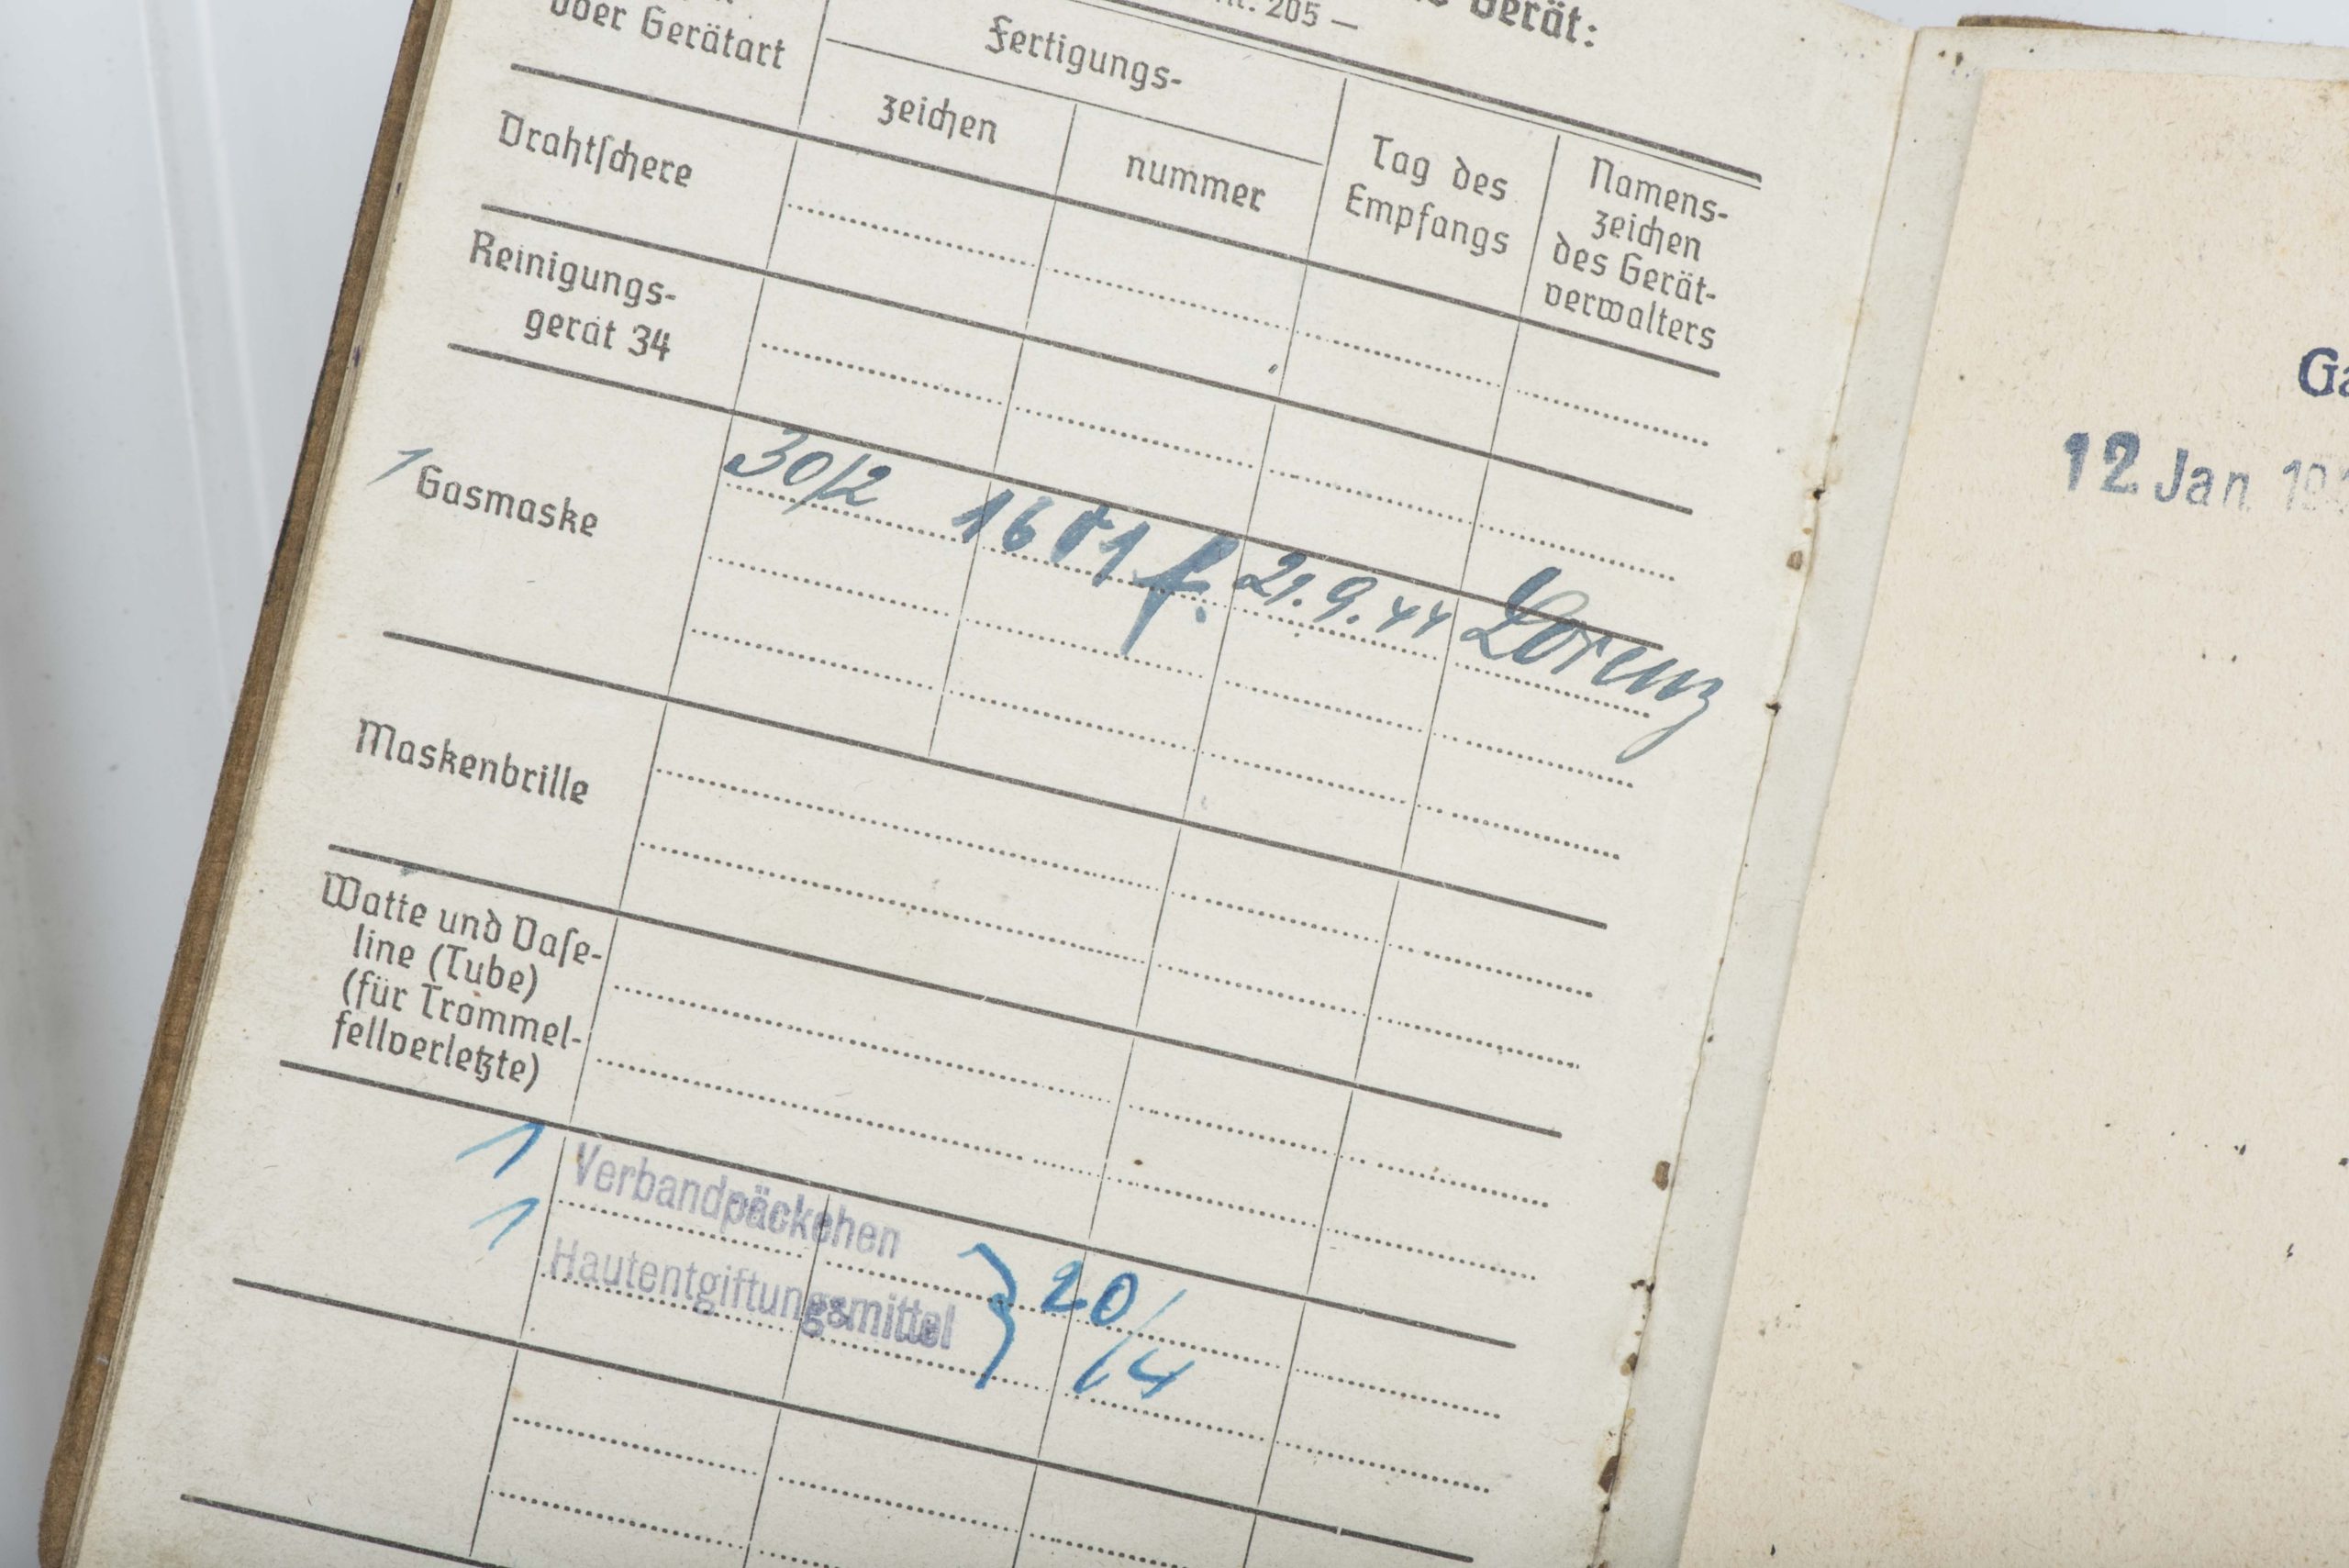 Gerät:
205 —
oder Gerätart
Fertigungs-
zeichen
nummer
Tag des
Empfangs
Namens-
zeichen
des Gerät-
verwalters
Drahtschere
Reinigungs-
gerät 34
1 Gasmaske 30/2 21.9.44 Lorenz
Maskenbrille
Watte und Vase-
line (Tube)
(für Trommel-
fellverletzte)
1 Verbandpäckchen
1 Hautentgiftungsmittel } 20/4
12. Jan. 19